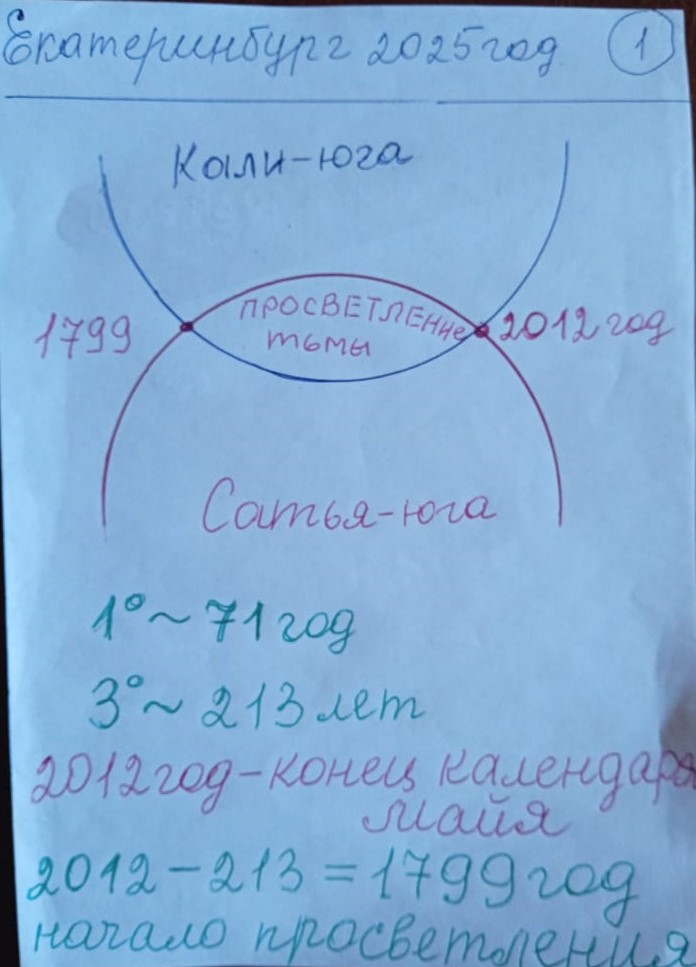 Екатеринбург 2025 год 1
Кали-юга
1799 ПРОСВЕТЛЕНие 2012 год
тьмы
Сатья-юга
1° ~ 71 год
3° ~ 213 лет
2012 год - конец календаря
майя
2012 - 213 = 1799 год
начало просветления